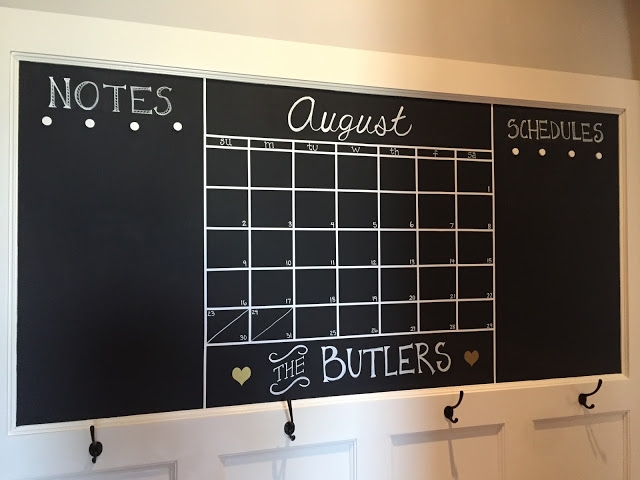 NOTES
August
SCHEDULES
su m tu w th f sa
1
2 3 4 5 6 7 8
9 10 11 12 13 14 15
16 17 18 19 20 21 22
23 24
30 31 25 26 27 28 29
THE BUTLERS